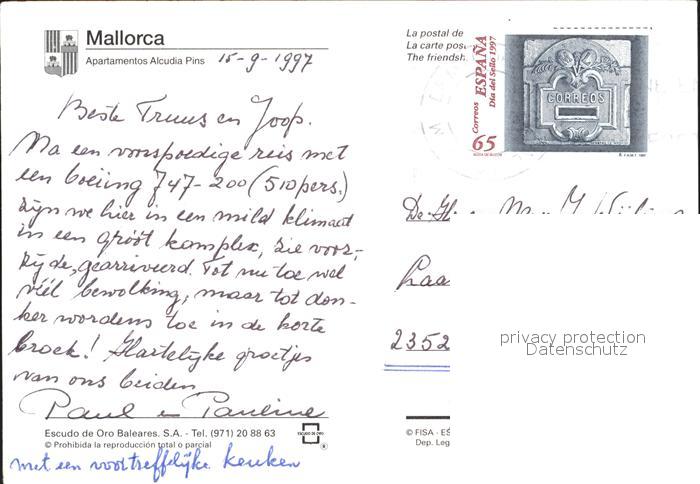 Mallorca
Apartamentos Alcudia Pins 15-9-1997
Beste Truus en Joop.
Na een voorspoedige reis met
een boeiing 747-200 (510 pers.)
zijn we hier in een mild klimaat
in een gróót komplex, zie voor-
zijde, gearriveerd. Tot nu toe wel
véél bewolking, maar tot don-
ker wordens toe in de korte
broek! Hartelijke groetjes
van ons beiden
Paul en Pauline
Escudo de Oro Baleares. S.A. - Tel. (971) 20 88 63
© Prohibida la reproducción total o parcial
ESCUDO DE ORO
®
met een voortreffelijke keuken
La postal de
La carte pos
The friendsh
Correos ESPAÑA
Día del Sello 1997
65
CORREOS
De
Laa
2352
privacy protection
Datenschutz
© FISA - ES
Dep. Leg